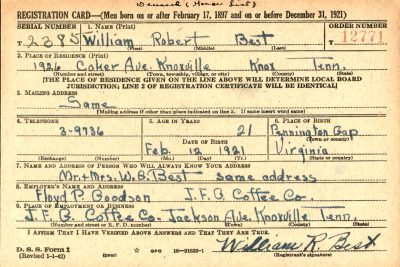 Deceased (Honor List)
REGISTRATION CARD—(Men born on or after February 17, 1897 and on or before December 31, 1921)
SERIAL NUMBER 1. NAME (Print) ORDER NUMBER
T 2385 William Robert Best 12771
(First) (Middle) (Last)
2. PLACE OF RESIDENCE (Print)
1926 Coker Ave. Knoxville Knox Tenn.
(Number and street) (Town, township, village, or city) (County) (State)
[THE PLACE OF RESIDENCE GIVEN ON THE LINE ABOVE WILL DETERMINE LOCAL BOARD
JURISDICTION; LINE 2 OF REGISTRATION CERTIFICATE WILL BE IDENTICAL]
3. MAILING ADDRESS
Same
[Mailing address if other than place indicated on line 2. If same insert word same]
4. TELEPHONE 5. AGE IN YEARS 6. PLACE OF BIRTH
3-9736 21 Pennington Gap
DATE OF BIRTH (Town or county)
Feb. 12 1921 Virginia
(Exchange) (Number) (Mo.) (Day) (Yr.) (State or country)
7. NAME AND ADDRESS OF PERSON WHO WILL ALWAYS KNOW YOUR ADDRESS
Mr. + Mrs. W. B. Best same address
8. EMPLOYER'S NAME AND ADDRESS
Floyd P. Goodson J. F. G. Coffee Co.
9. PLACE OF EMPLOYMENT OR BUSINESS
J. F. G. Coffee Co. Jackson Ave. Knoxville Tenn.
(Number and street or R. F. D. number) (Town) (County) (State)
I AFFIRM THAT I HAVE VERIFIED ABOVE ANSWERS AND THAT THEY ARE TRUE.
D. S. S. Form 1 GPO 16—21630-1 William R Best
(Revised 1-1-42) (over) (Registrant's signature)